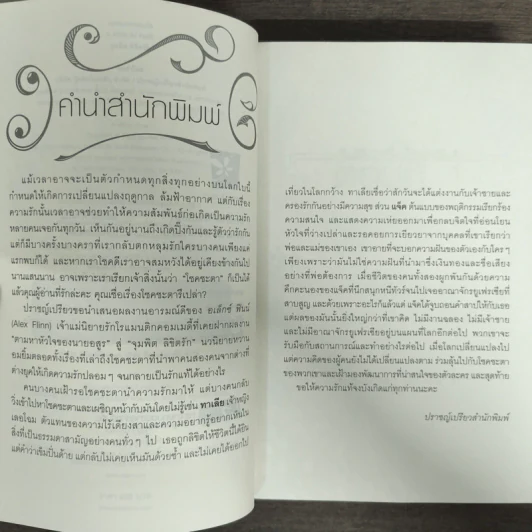 คำนำสำนักพิมพ์
แม้เวลาอาจจะเป็นตัวกำหนดทุกสิ่งทุกอย่างบนโลกใบนี้
กำหนดให้เกิดการเปลี่ยนแปลงฤดูกาล ลมฟ้าอากาศ แต่กับเรื่อง
ความรักนั้นเวลาอาจช่วยทำให้ความสัมพันธ์ก่อเกิดเป็นความรัก
หลายคนเจอกันทุกวัน เห็นกันอยู่นานถึงเกิดปิ๊งกันและรู้ตัวว่ารักกัน
แต่ก็มีบางครั้งบางคราที่เรากลับตกหลุมรักใครบางคนเพียงแค่
แรกพบก็ได้ และหากเราโชคดีเราอาจสมหวังได้อยู่เคียงข้างกันไป
นานแสนนาน อาจเพราะเราเรียกเจ้าสิ่งนั้นว่า "โชคชะตา" ก็เป็นได้
แล้วคุณผู้อ่านที่รักล่ะคะ คุณเชื่อเรื่องโชคชะตารึเปล่า?
ปราชญ์เปรียวขอนำเสนอผลงานอารมณ์ดีของ อเล็กซ์ ฟินน์
(Alex Flinn) เจ้าแม่นิยายรักโรแมนติกคอมเมดี้ที่เคยฝากผลงาน
"ตามหาหัวใจของนายอสูร" สู่ "จุมพิต ลิขิตรัก" นวนิยายหวาน
อมยิ้มตลอดทั้งเรื่องที่เล่าถึงโชคชะตาที่นำพาคนสองคนจากต่างที่
ต่างยุคให้เกิดความรักปลอม ๆ จนกลายเป็นรักแท้ได้อย่างไร
คนบางคนเฝ้ารอโชคชะตานำความรักมาให้ แต่บางคนกลับ
วิ่งเข้าไปหาโชคชะตาและเผชิญหน้ากับมันโดยไม่รู้เช่น ทาเลีย เจ้าหญิง
เลอโฉม ตัวแทนของความไร้เดียงสาและความอยากรู้อยากเห็นใน
สิ่งที่เป็นธรรมดาสามัญอย่างคนทั่ว ๆ ไป เธอถูกลิขิตให้ชีวิตนี้ได้ยิน
แต่คำว่าเข็มปั่นด้าย แต่กลับไม่เคยเห็นมันด้วยซ้ำ และไม่เคยได้ออกไป
เที่ยวในโลกกว้าง ทาเลียเชื่อว่าสักวันจะได้แต่งงานกับเจ้าชายและ
ครองรักกันอย่างมีความสุข ส่วน แจ็ค ต้นแบบของพฤติกรรมเรียกร้อง
ความสนใจ และแสดงความเห่ยออกมาเพื่อกลบจิตใจที่อ่อนโยน
หัวใจที่ว่างเปล่าและรอคอยการเยียวยาจากบุคคลที่เขาเรียกว่า
พ่อและแม่ของเขาเอง เขาอายที่จะบอกความฝันของตัวเองกับใคร ๆ
เพียงเพราะว่ามันไม่ใช่ความฝันที่นำมาซึ่งเงินทองและชื่อเสียง
อย่างที่พ่อต้องการ เมื่อชีวิตของคนทั้งสองผูกพันกันด้วยความ
คึกคะนองของแจ็คที่นึกสนุกหนีทัวร์จนไปเจออาณาจักรยูเฟรเชียที่
สาบสูญ และด้วยเพราะอะไรก็แล้วแต่ แจ็คได้จุมพิตปลุกเธอ
และไม่มีอาณาจักรยูเฟรเชียอยู่บนแผนที่โลกอีกต่อไป พวกเขาจะ
รับมือกับสถานการณ์และทำอย่างไรต่อไป เมื่อโลกเปลี่ยนแปลงไป
แต่ความคิดของผู้คนยังไม่ได้เปลี่ยนแปลงตาม ร่วมลุ้นไปกับโชคชะตา
ของพวกเขาและเฝ้ามองพัฒนาการที่น่าสนใจของตัวละคร และสุดท้าย
ขอให้ความรักแท้จงบังเกิดแก่ทุกท่านนะคะ
ปราชญ์เปรียวสำนักพิมพ์